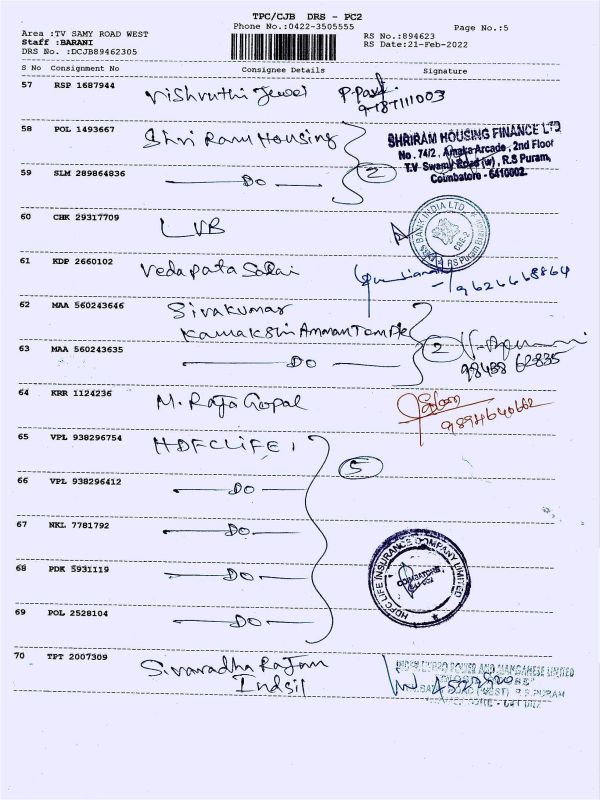 TPC/CJB DRS - PC2
Phone No.:0422-3505555
Page No.:5
Area :TV SAMY ROAD WEST
Staff :BARANI
DRS No. :DCJB89462305
RS No.:894623
RS Date:21-Feb-2022
S No Consignment No Consignee Details Signature
57 RSP 1687944 Vishruthi Jewel
9787111003
58 POL 1493667 Shri Ram Housing
SHRIRAM HOUSING FINANCE LTD
No. 74/2, Amaka Arcade, 2nd Floor
T.V. Swamy Road (w), R.S Puram,
Coimbatore - 6410002.
59 SLM 289864836 DO 2
60 CHK 29317709 LVB
BANK INDIA LTD
61 KDP 2660102 Vedapata Salai
62 MAA 560243646 Sivakumar
Kamakshi Amman Temple
63 MAA 560243635 DO 2
98438 62835
64 KRR 1124236 M. Raja Gopal
9894640662
65 VPL 938296754 HDFC LIFE
5
66 VPL 938296412 DO
67 NKL 7781792 DO
68 PDK 5931119 DO
HDFC LIFE INSURANCE COMPANY LIMITED
COIMBATORE
69 POL 2528104 DO
70 TPT 2007309 Sivaradha Rajam
Indsil
POWER AND MANGANESE LIMITED
(WEST) R.S.PURAM